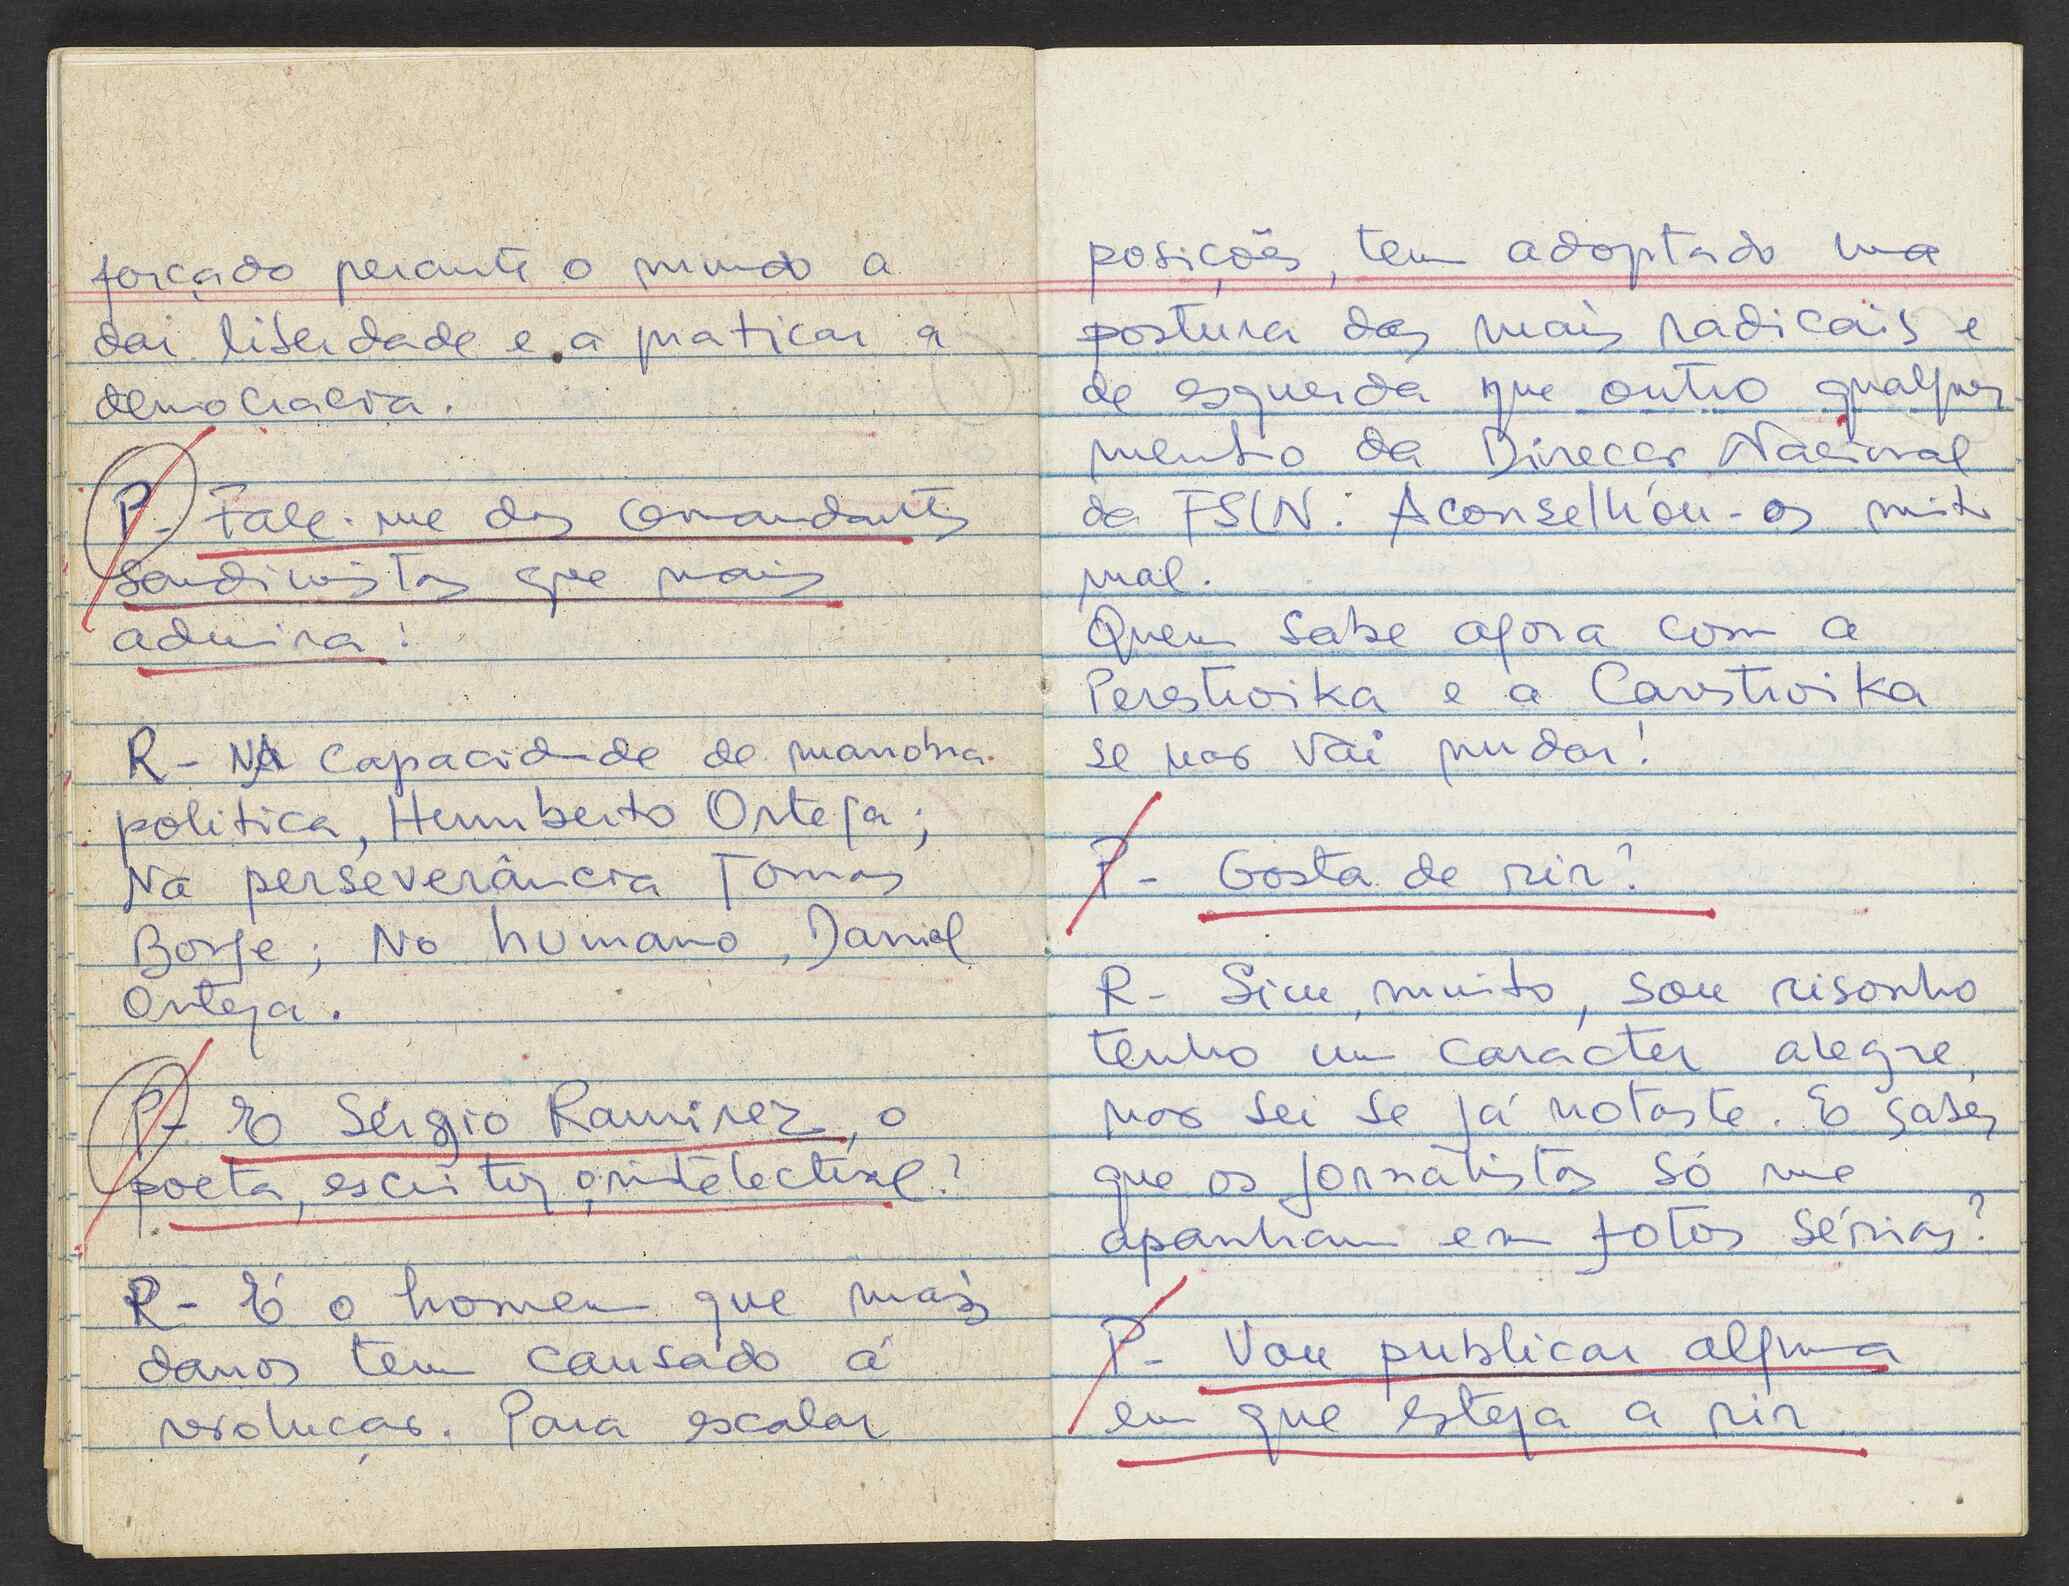 forçado perante o mundo a
dar liberdade e a praticar a
democracia.
P- Fale-me dos comandantes
Sandinistas que mais
admira!
R- NA capacidade de manobra
politica, Humberto Ortega;
Na perseverância Tomas
Borge; No humano, Daniel
Ortega.
P- E Sérgio Ramirez, o
poeta, escritor, o intelectual?
R- É o homem que mais
danos tem causado á
revolução. Para escalar
posições, tem adoptado uma
postura das mais radicais e
de esquerda que outro qualquer
membro da Direcção Nacional
da FSLN. Aconselhou-os muito
mal.
Quem sabe agora com a
Perestroika e a Carstroika
se não vai mudar!
P- Gosta de rir?
R- Sim, muito, sou risonho
tenho um caracter alegre,
não sei se já notaste. E sabes
que os jornalistas só me
apanham em fotos sérias?
P- Vou publicar alguma
em que esteja a rir